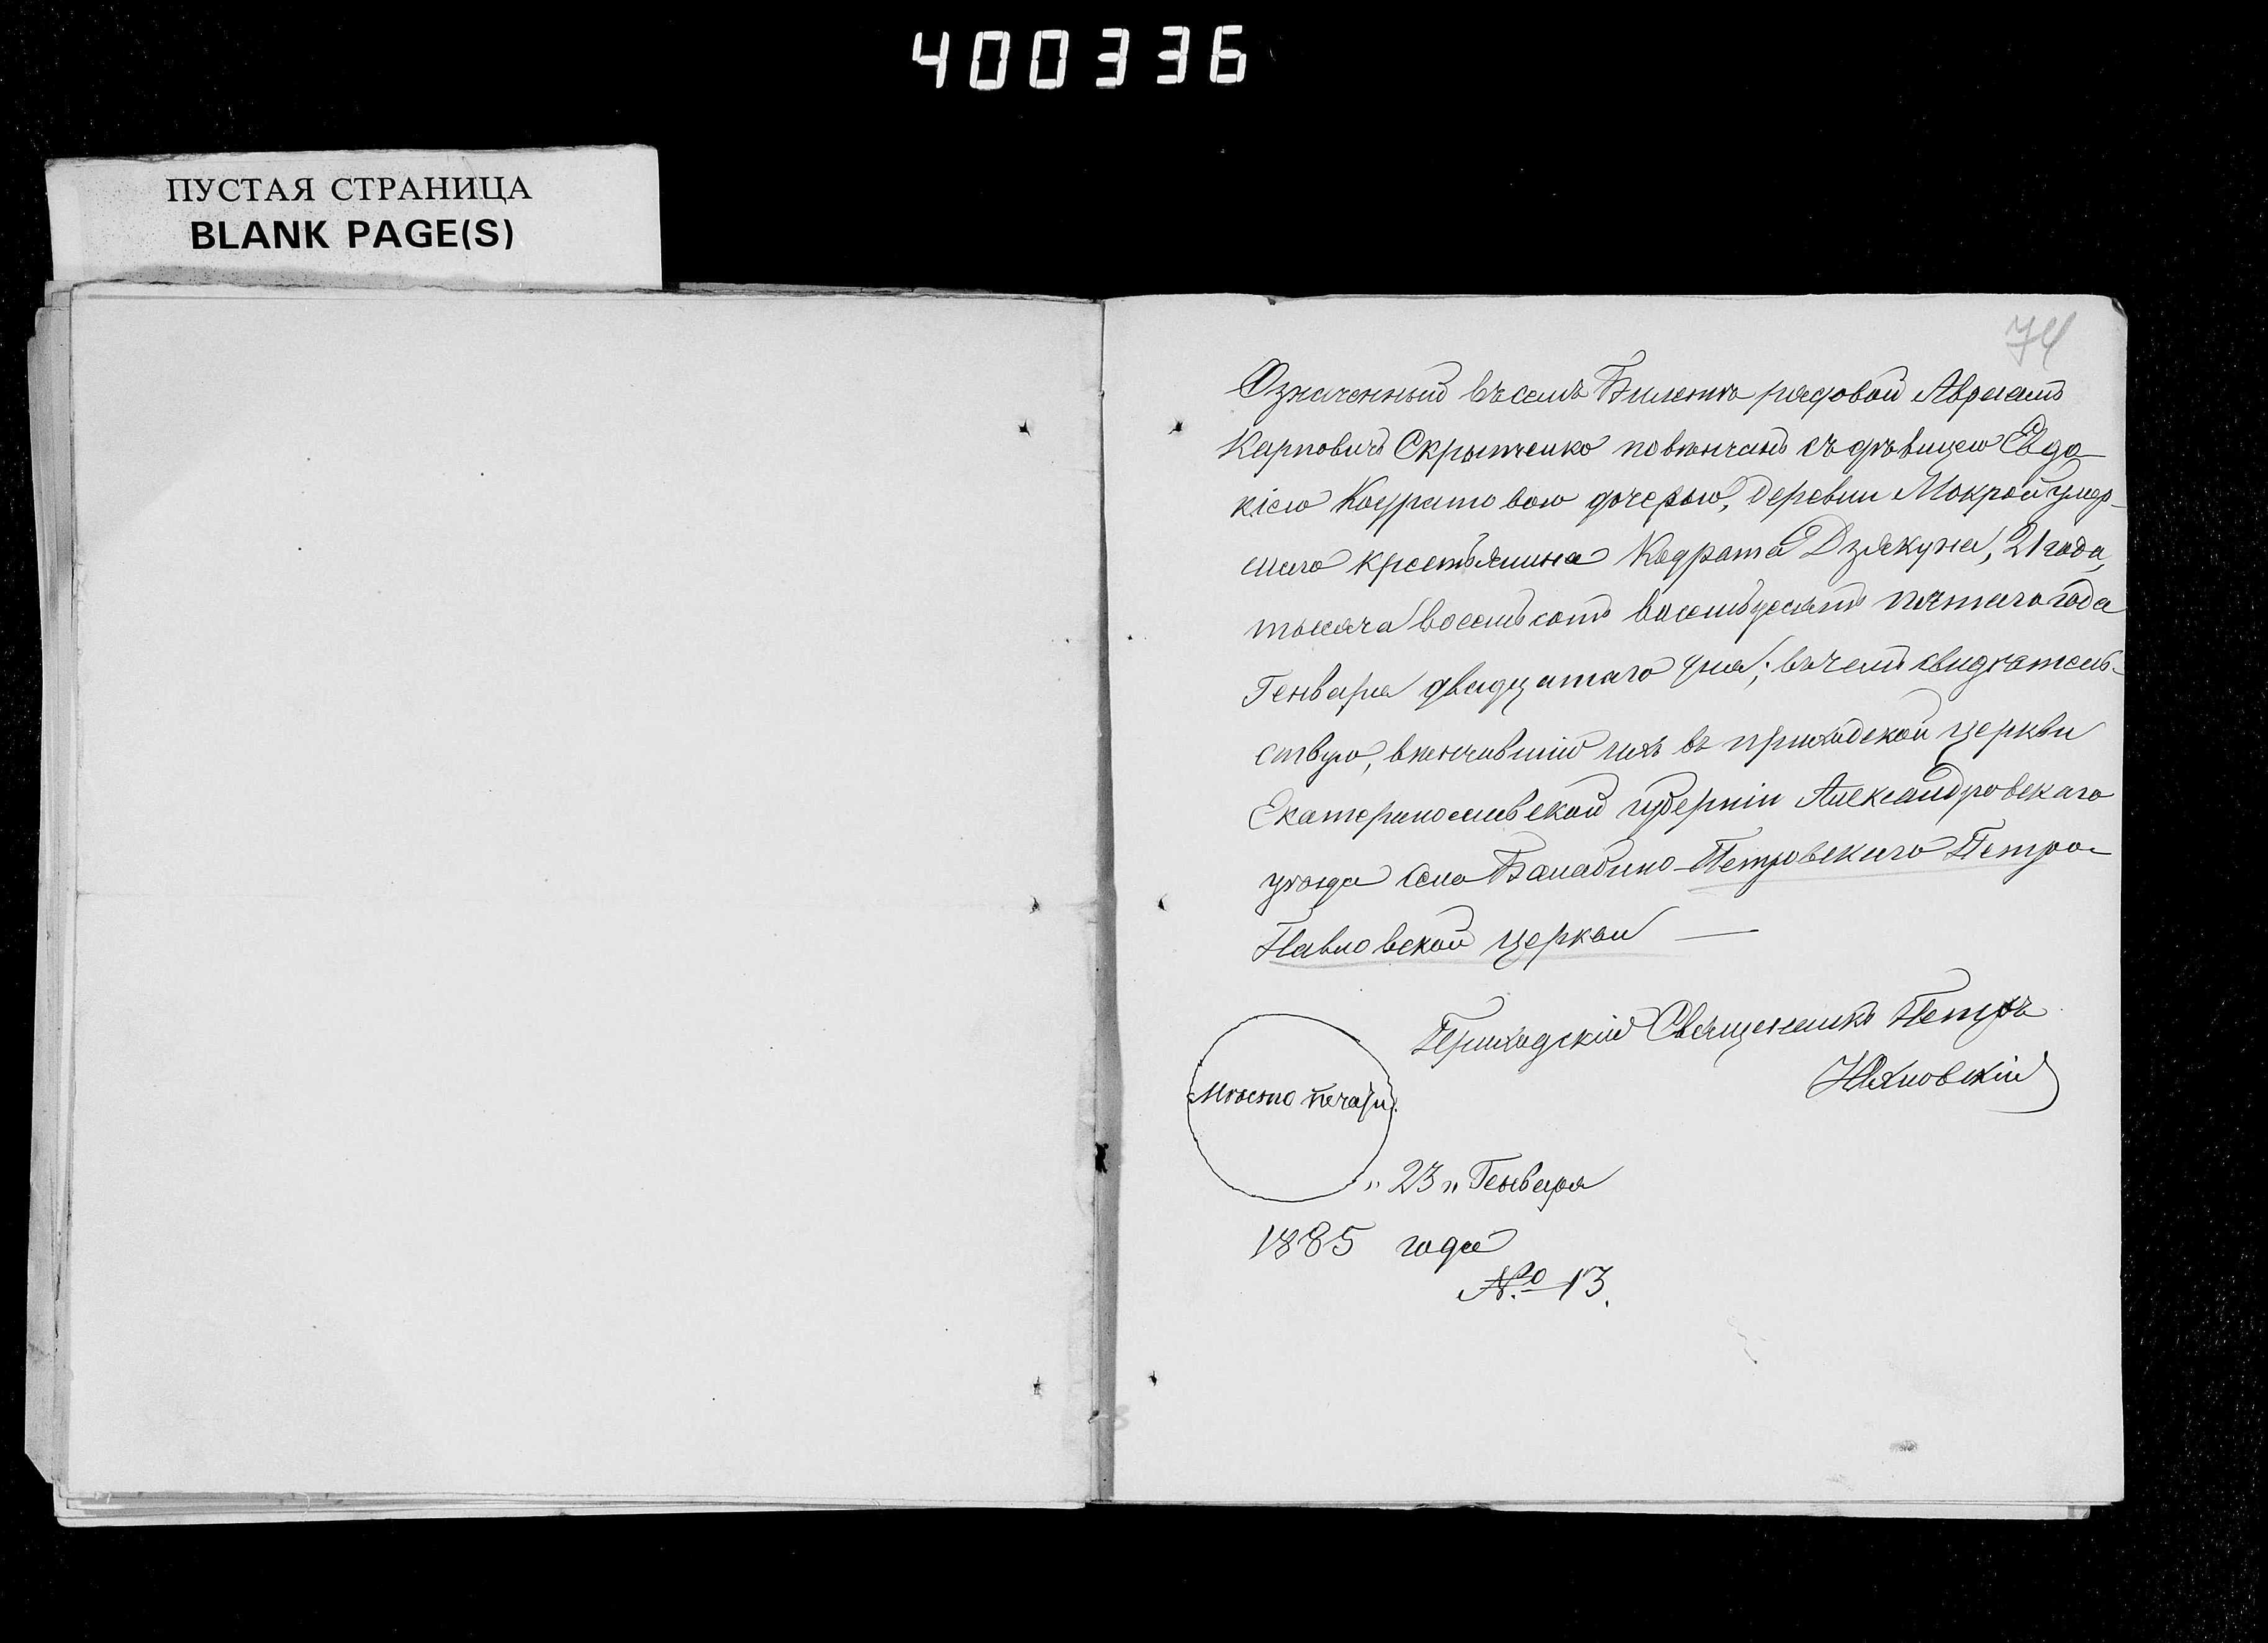 400336
ПУСТАЯ СТРАНИЦА
BLANK PAGE(S)
74
Означенный въ семъ Билетѣ рядовой Авраамъ
Карповичъ Скрыпченко повѣнчанъ съ дѣвицею Евдо-
кіею Кодратовою дочерью, деревни Мокрой умер-
шаго крестьянина Кодрата Дзякуна, 21 года,
тысяча восемьсотъ восемьдесятъ пятаго года
Генваря двадцатаго дня; въ чемъ свидѣтель-
ствую, вѣнчавшій ихъ въ приходской церкви
Екатеринославской губерніи Александровскаго
уѣзда села Балабино-Петровскаго Петро-
Павловской церкви —
Приходскій Священникъ Петръ
Мѣсто печати.
„23„ Генваря
1885 года
№ 13.